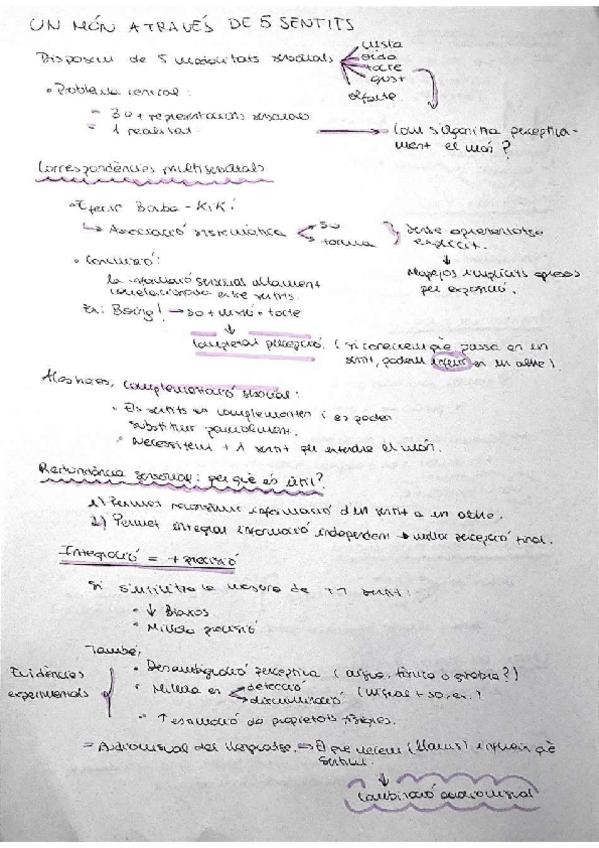 UN MÓN A TRAVÉS DE 5 SENTITS
Disposem de 5 modalitats sensorials
vista
oïda
tacte
gust
olfacte
• Problema central:
- 30 + representacions sensorials
= 1 realitat.
Com s'organitza perceptiva-
ment el món?
Correspondències multisensorials
• Efecte Bouba-Kiki:
↳ Associació sistemàtica
so
forma
sense aprenentatge
explícit.
↓
Mapejos implícits apresos
per exposició.
• Connexió:
la informació sensorial altament
correlacionada entre sentits.
Ex: Boing! → so + visió + tacte
↓
Completar percepció. (si coneixem què passa en un
sentit, podem inferir en un altre).
Aleshores, complementació sensorial:
• Els sentits es complementen i es poden
substituir parcialment.
• Necessitem + 1 sentit per entendre el món.
Redundància sensorial: per què és útil?
1) Permet reconstruir informació d'un sentit a un altre.
2) Permet integrar informació independent → millor percepció final.
Integració = + precisió
Si s'utilitza la mesura de +1 sentit:
• ↓ Biaixos
• Millora precisió
També,
Evidències
experimentals
• Desambiguació perceptiva (aigua, tònica o ginebra?)
• Millora en
detecció
discriminació
(visual + so, ex.)
• ↑ estimació de propietats físiques.
- Audiovisual del llenguatge. → El que veiem (llavis) influeix què
sentim.
↓
Combinació audiovisual